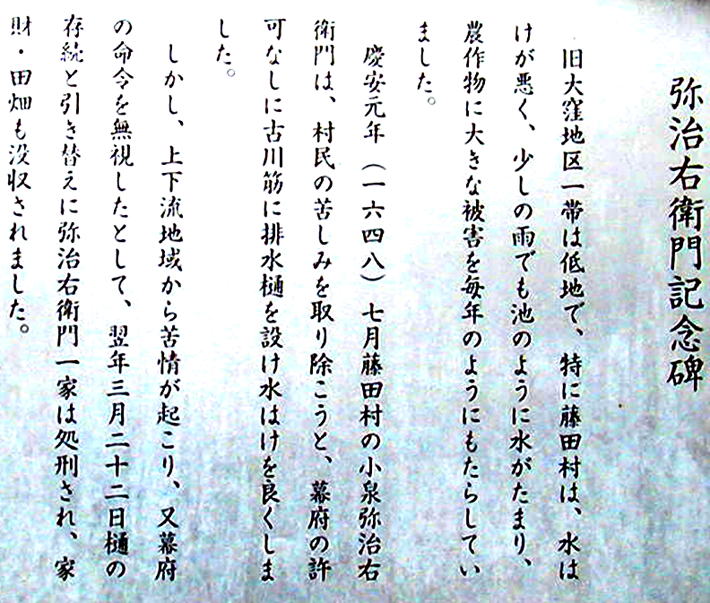 弥治右衛門記念碑
旧大窪地区一帯は低地で、特に藤田村は、水は
けが悪く、少しの雨でも池のように水がたまり、
農作物に大きな被害を毎年のようにもたらしてい
ました。
慶安元年（一六四八）七月藤田村の小泉弥治右
衛門は、村民の苦しみを取り除こうと、幕府の許
可なしに古川筋に排水樋を設け水はけを良くしま
した。
しかし、上下流地域から苦情が起こり、又幕府
の命令を無視したとして、翌年三月二十二日樋の
存続と引き替えに弥治右衛門一家は処刑され、家
財・田畑も没収されました。